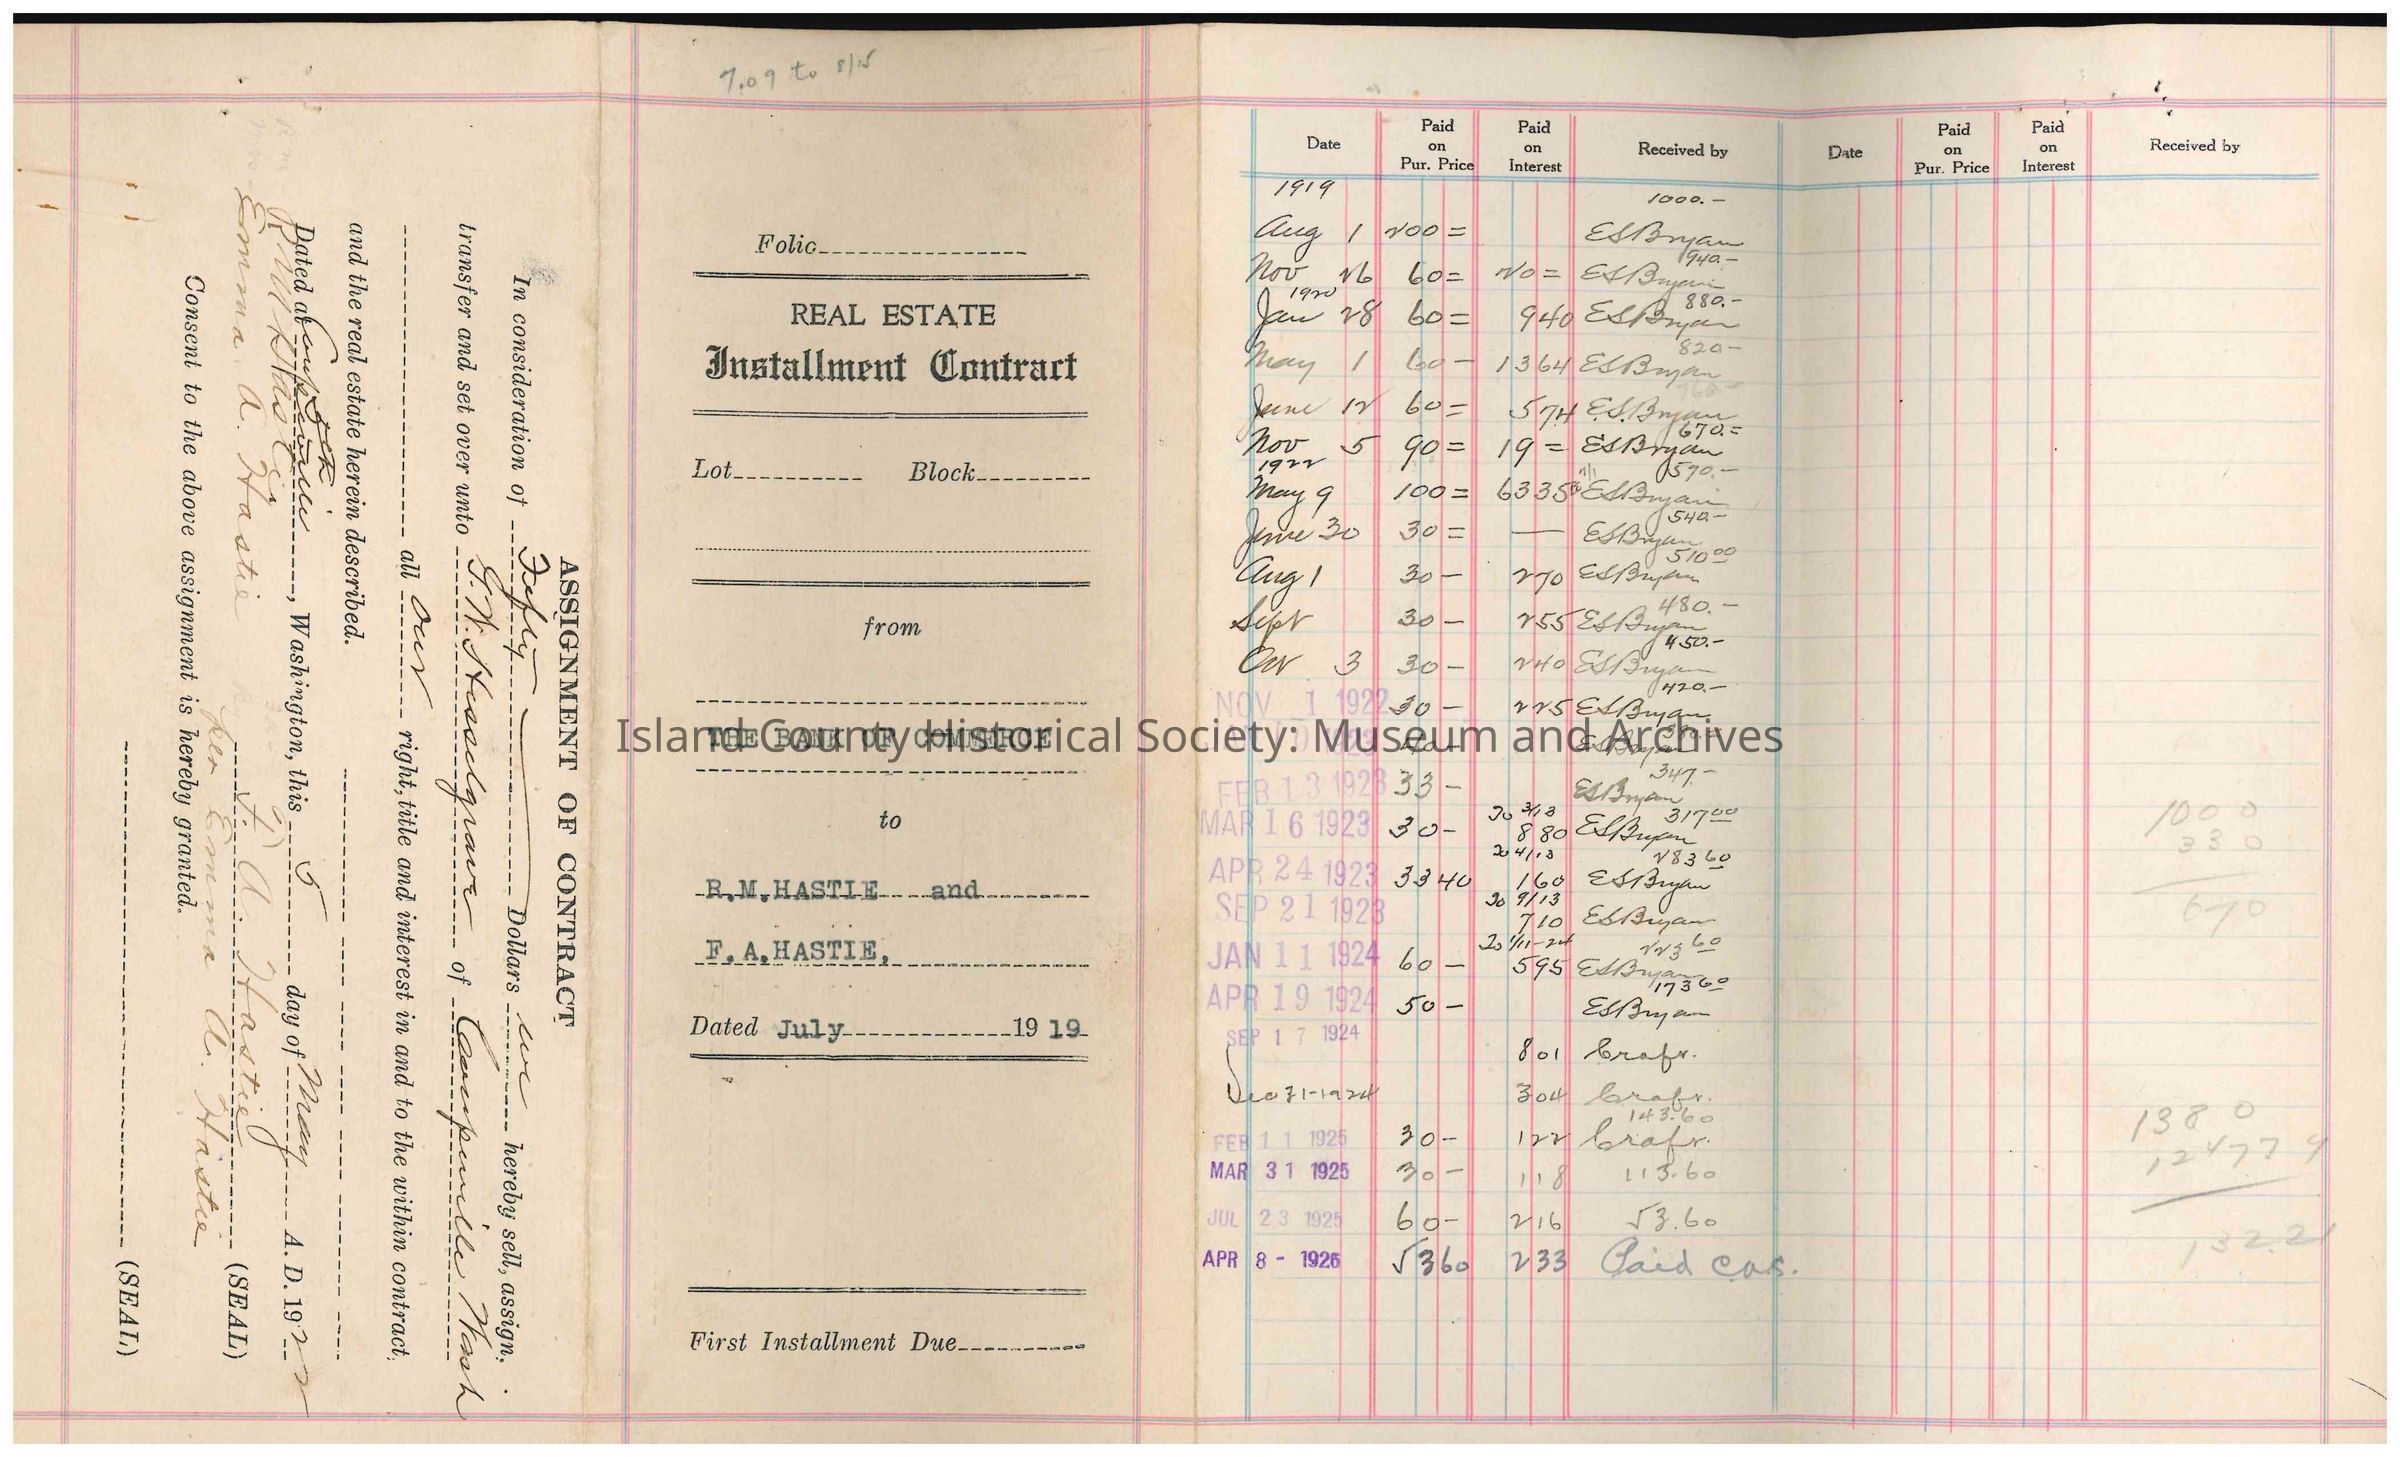 ASSIGNMENT OF CONTRACT
In consideration of Fifty Dollars we hereby sell, assign,
transfer and set over unto G. W. Hesselgrave of Coupeville Wash
all our right, title and interest in and to the within contract,
and the real estate herein described.
Dated at Coupeville, Washington, this 5 day of May A. D. 1922
R M Hastie
F. A. Hastie (SEAL)
Emma A. Hastie
per Emma A. Hastie
Consent to the above assignment is hereby granted.
(SEAL)
7.09 to 8/15
Folio
REAL ESTATE
Installment Contract
Lot Block
from
THE BANK OF COMMERCE
to
R.M.HASTIE and
F.A.HASTIE,
Dated July 1919
First Installment Due
Date Paid on Pur. Price Paid on Interest Received by Date Paid on Pur. Price Paid on Interest Received by
1919 1000.-
Aug 1 200= ESBryan
940.-
Nov 26 60= 20= ESBryan
1920 880.-
Jan 28 60= 940 ESBryan
820-
May 1 60- 1364 ESBryan
760.-
June 12 60= 574 E.S.Bryan
670.=
Nov 5 90= 19= ESBryan
1922 570.-
May 9 100= 6335 ESBryan
540-
June 30 30= — ESBryan
510 00
Aug 1 30- 270 ESBryan
480.-
Sept 30- 255 ESBryan
450.-
Oct 3 30- 240 ESBryan
420.-
NOV 1 1922 30- 225 ESBryan
Island County Historical Society: Museum and Archives
347.-
FEB 13 1923 33- ESBryan
to 3/13 317 00
MAR 16 1923 30- 880 ESBryan
to 4/13 283 60
APR 24 1923 3340 160 ESBryan
to 9/13
SEP 21 1923 710 ESBryan
to 1/11-24 223 60
JAN 11 1924 60- 595 ESBryan
173 60
APR 19 1924 50- ESBryan
SEP 17 1924 801
Dec 31-1924 304
143.60
FEB 11 1925 30- 122
MAR 31 1925 30- 118 113.60
JUL 23 1925 60- 216 53.60
APR 8 - 1926 5360 233 Paid
1000
330
670
1380
132.21